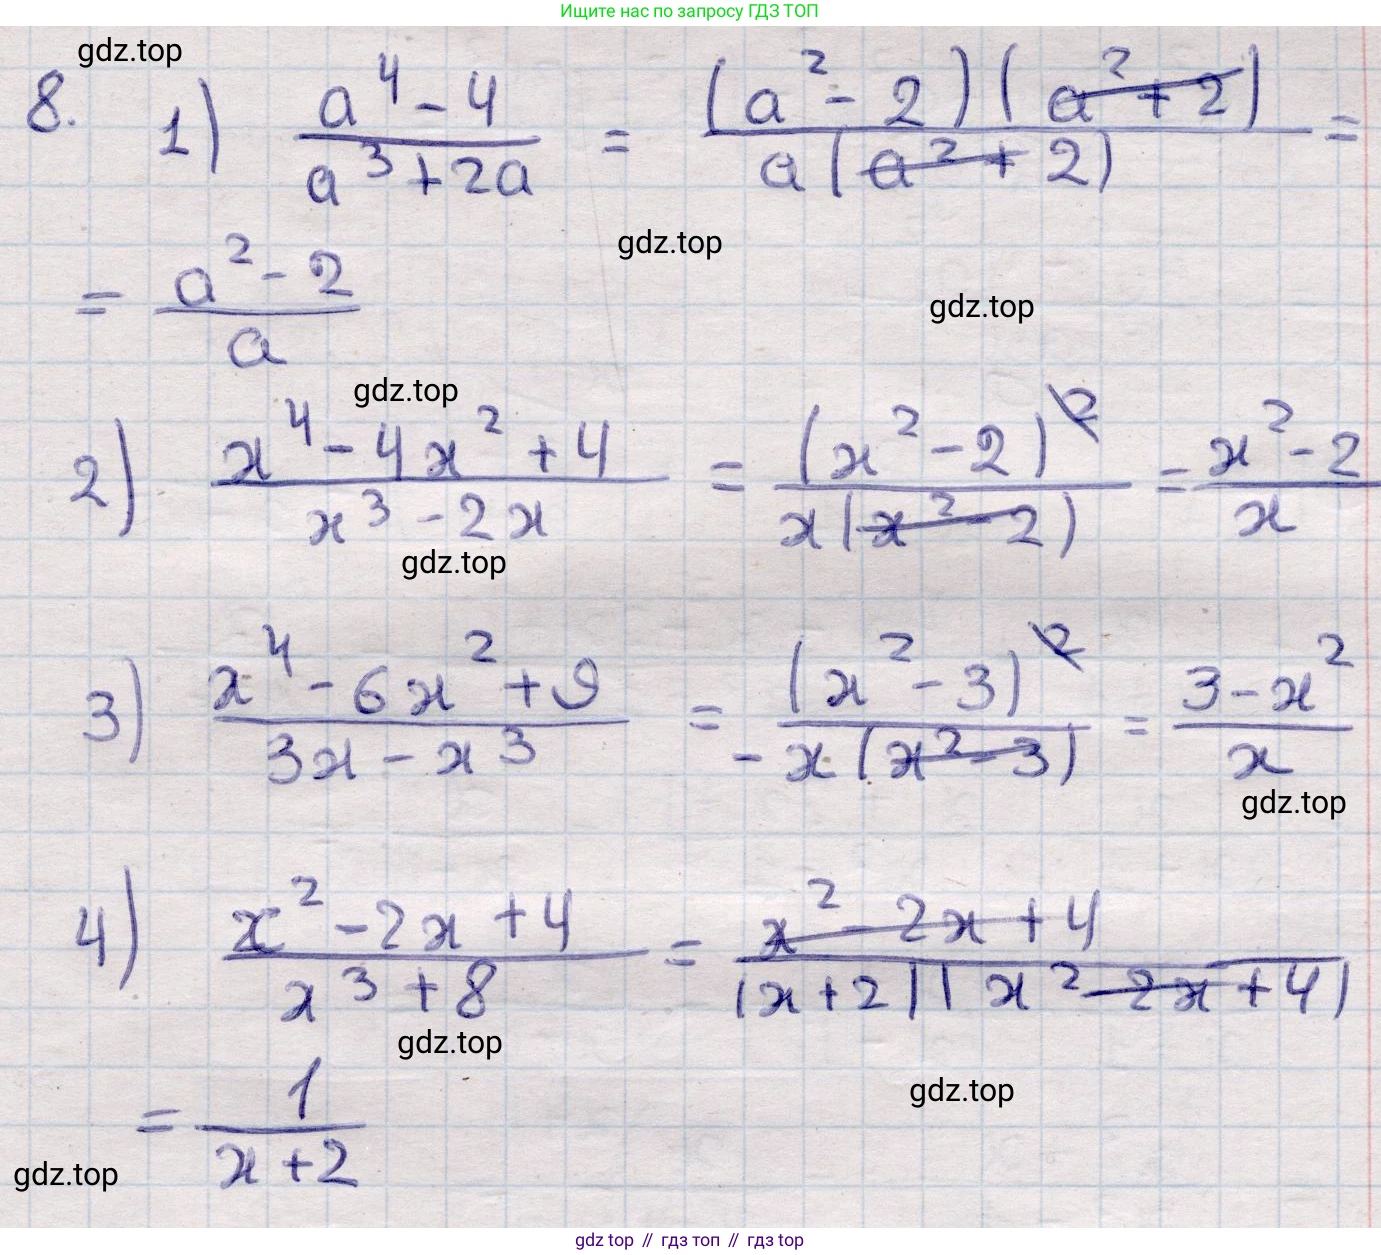 Ищите нас по запросу ГДЗ ТОП
gdz.top
8. 1) (a⁴ - 4)/(a³ + 2a) = ((a² - 2)(a² + 2))/(a(a² + 2)) =
gdz.top
= (a² - 2)/a
gdz.top
gdz.top
2) (x⁴ - 4x² + 4)/(x³ - 2x) = (x² - 2)²/(x(x² - 2)) = (x² - 2)/x
gdz.top
3) (x⁴ - 6x² + 9)/(3x - x³) = (x² - 3)²/(-x(x² - 3)) = (3 - x²)/x
gdz.top
4) (x² - 2x + 4)/(x³ + 8) = (x² - 2x + 4)/((x + 2)(x² - 2x + 4))
gdz.top
= 1/(x + 2)
gdz.top
gdz.top
gdz top // гдз топ // гдз top